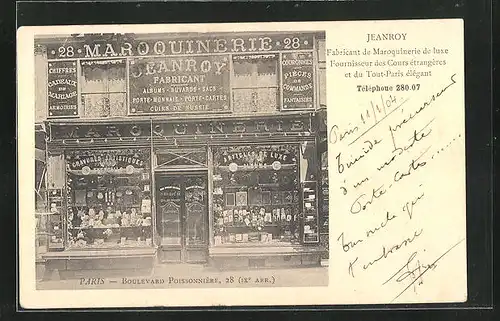 28 MAROQUINERIE 28
CHIFFRES
CADEAUX
DE
MARIAGE
ARMOIRIES
JEANROY
FABRICANT
ALBUMS - BUVARDS - SACS
PORTE-MONNAIE PORTE-CARTES
CUIRS DE RUSSIE
COURONNES
PIÈCES
DE
COMMANDE
FANTAISIES
MAROQUINERIE
GRAVURES ARTISTIQUES
ARTICLES DE LUXE
PARIS — BOULEVARD POISSONNIÈRE, 28 (IXe ARR.)
JEANROY
Fabricant de Maroquinerie de luxe
Fournisseur des Cours étrangères
et du Tout-Paris élégant
Téléphone 280.07
Paris 11/1/04
précurseur
d'un modeste
Porte-cartes ......
qui